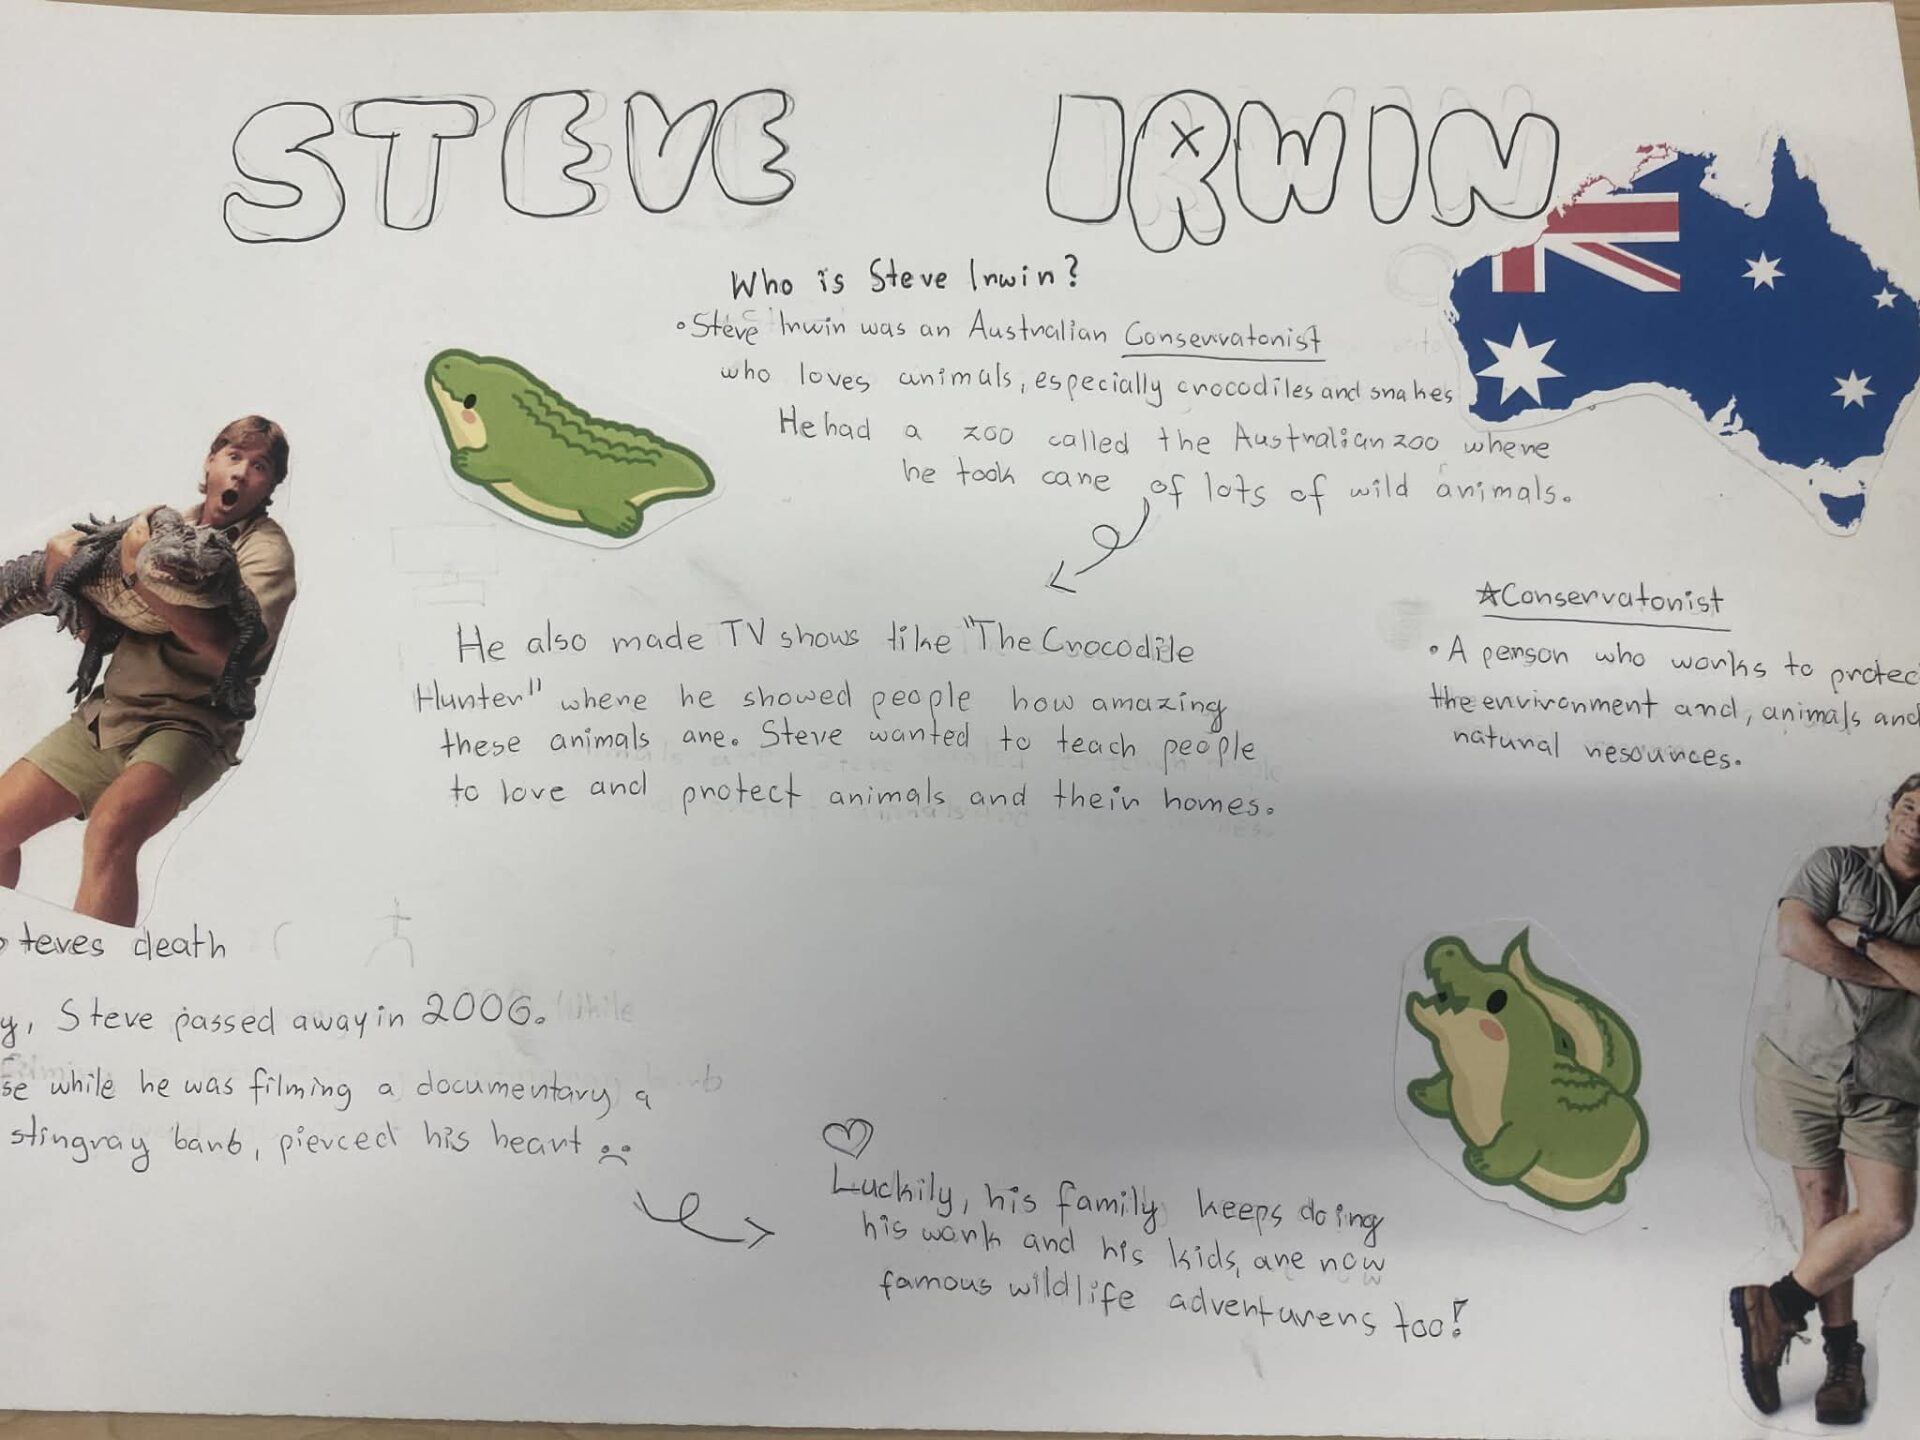 STEVE IRWIN
Who is Steve Irwin?
•Steve Irwin was an Australian Conservatonist
who loves animals, especially crocodiles and snakes
He had a zoo called the Australian zoo where
he took care of lots of wild animals.
He also made TV shows like "The Crocodile
Hunter" where he showed people how amazing
these animals are. Steve wanted to teach people
to love and protect animals and their homes.
☆Conservatonist
• A person who works to protec
the environment and, animals and
natural resources.
teves death
y, Steve passed away in 2006.
se while he was filming a documentary a
stingray barb, pierced his heart
Luckily, his family keeps doing
his work and his kids, are now
famous wildlife adventurers too!